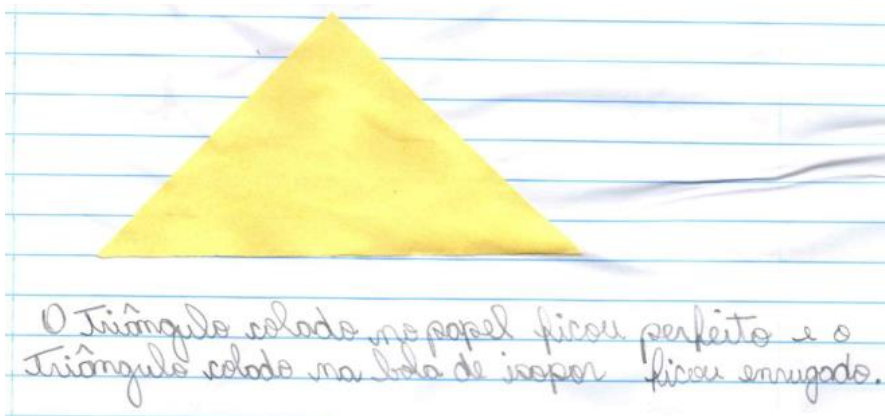 O Triângulo colado no papel ficou perfeito e o
Triângulo colado na bola de isopor ficou enrugado.